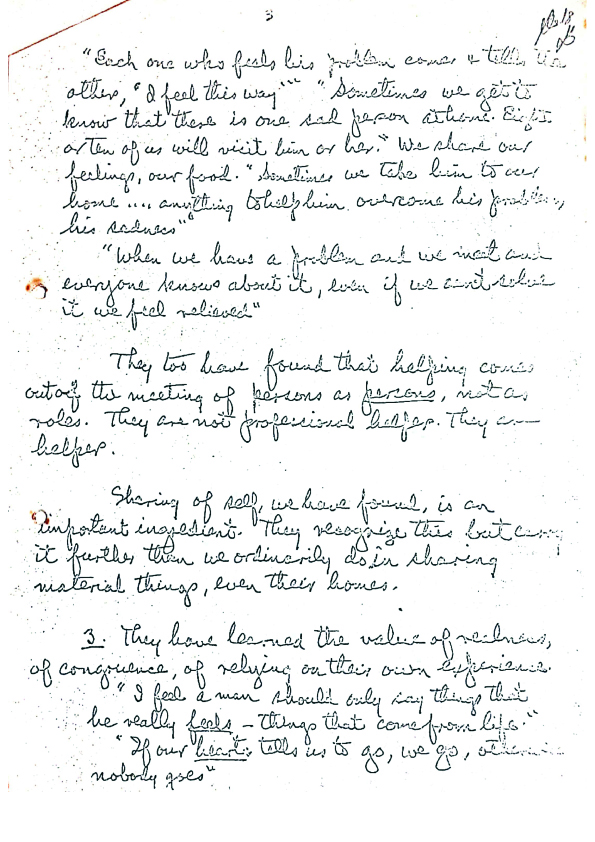 3
"Each one who feels his problem comes & tells the
other, "I feel this way""" "Sometimes we get to
know that there is one sad person at home. Eight
or ten of us will visit him or her." We share our
feelings, our food. "Sometimes we take him to our
home .... anything to help him overcome his problems,
his sadness"
"When we have a problem and we meet and
everyone knows about it, even if we can't solve
it we feel relieved"
They too have found that helping comes
out of the meeting of persons as persons, not as
roles. They are not professional helpers. They are
helper.
Sharing of self, we have found, is an
important ingredient. They recognize this but carry
it further than we ordinarily do, in sharing
material things, even their homes.
3. They have learned the value of realness,
of congruence, of relying on their own experience.
"I feel a man should only say things that
he really feels – things that come from life."
"If our hearts tells us to go, we go, otherwise
nobody goes"